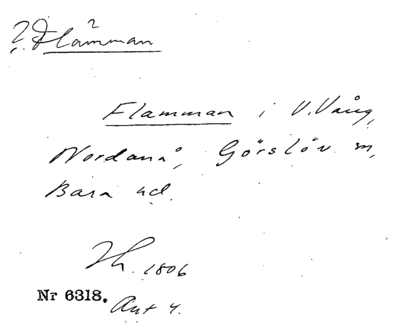 ? Flämman
Flamman i V. Vång,
Nordanå, Görslöv sn,
Bara hd.
Th. 1806
Nr 6318. Akt 4.